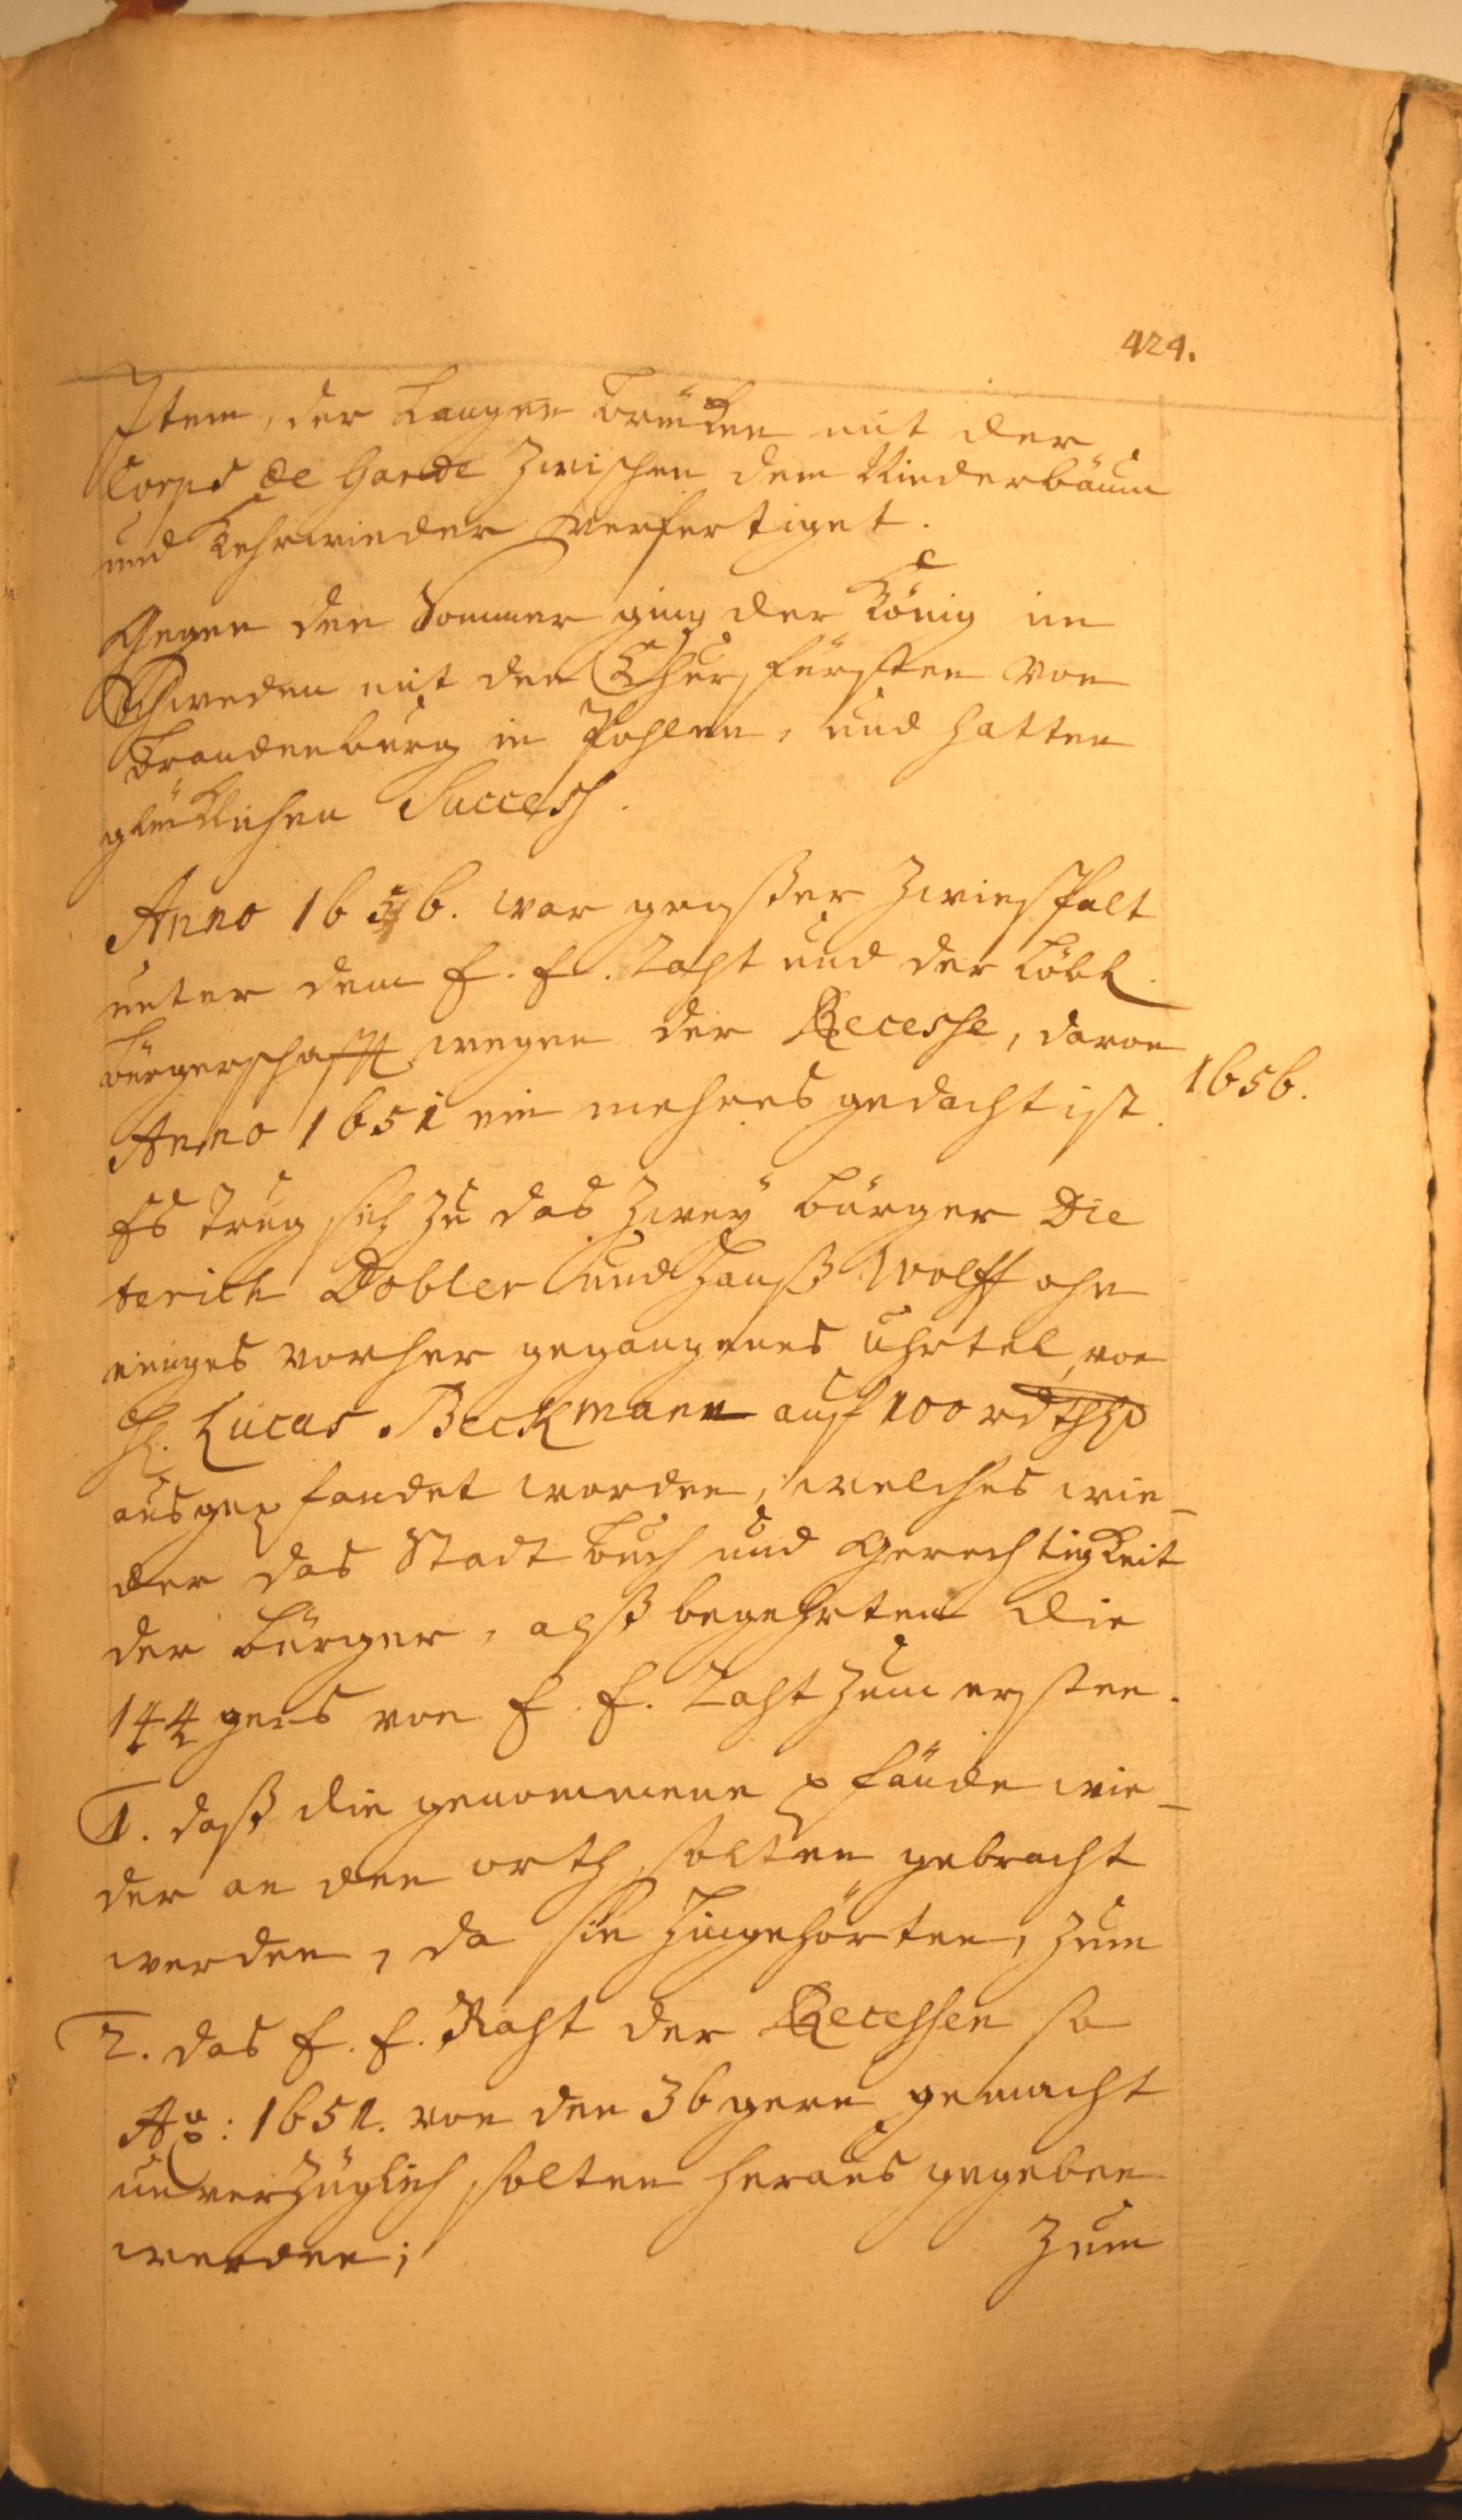 424.
Item, der Langen Brücken mit der
Corps de Garde zwischen dem Niederbaum
und Kehrwieder verfertiget.
Gegen den Sommer ging der König in
Schweden mit den Churfürsten von
Brandenburg in Pohlen, und hatten
glücklichen Success.
Anno 1656. war großer Zwiespalt
unter dem E. E. Raht und der Löbl.
Bürgerschafft wegen der Recesse, davon
Anno 1651 ein mehres gedacht ist.
1656.
Es trug sich zu das zwey Bürger Die
terich Dobler und Hanß Wolff ohn
einiges vorher gegangenes Uhrtel, von
H. Lucas Beckmann auf 100 rdthlr
ausgepfandet worden, welches wie-
der das Stadt Buch und Gerechtigkeit
der Bürger, alß begehrten die
144 gers von E. E. Raht zum ersten.
1. daß die genommene pfände wie-
der an den orth solten gebracht
werden, da sie hingehörten, zum
2. das E. E. Raht der Recessen so
Ao: 1651. von den 36gern gemacht
unverzüglich solten heraus gegeben
werden;
zum